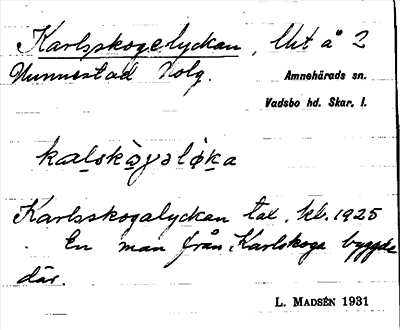 Karlsskogelyckan, Ut å 2
Nunnestad Holg.
Amnehärads sn.
Vadsbo hd. Skar. l.
kalskògsløka
Karlsskogalyckan tax. kb. 1925
. En man från Karlskoga byggde
där.
L. MADSÉN 1931